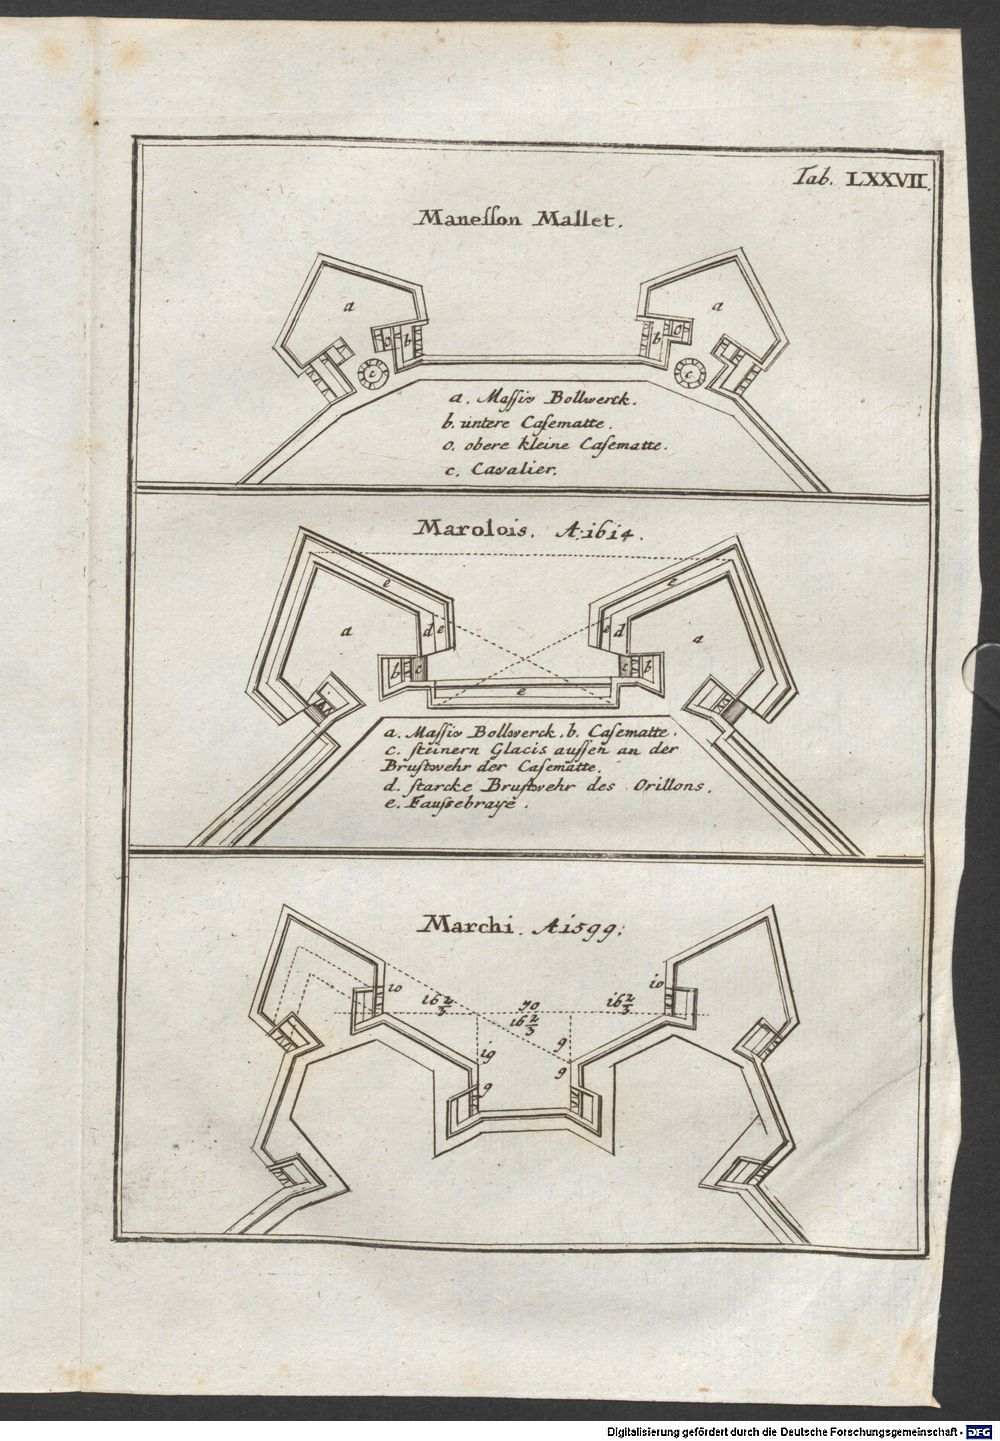 Tab. LXXVII.
Maneſſon Mallet.
a
a
o
b
b
o
c
c
a. Maſſiv Bollwerck.
b. untere Caſematte.
o. obere kleine Caſematte.
c. Cavalier.
Marolois. A. 1614.
e
e
a
d
e
e
d
a
b
c
c
b
e
a. Maſſiv Bollwerck. b. Caſematte.
c. ſteinern Glacis auſſen an der
Bruſtwehr der Caſematte.
d. ſtarcke Bruſtwehr des Orillons.
e. Fauſſebraye.
Marchi. A 1599.
10
16 2/3
70
16 2/3
16 2/3
10
19
9
9
9
Digitalisierung gefördert durch die Deutsche Forschungsgemeinschaft - DFG